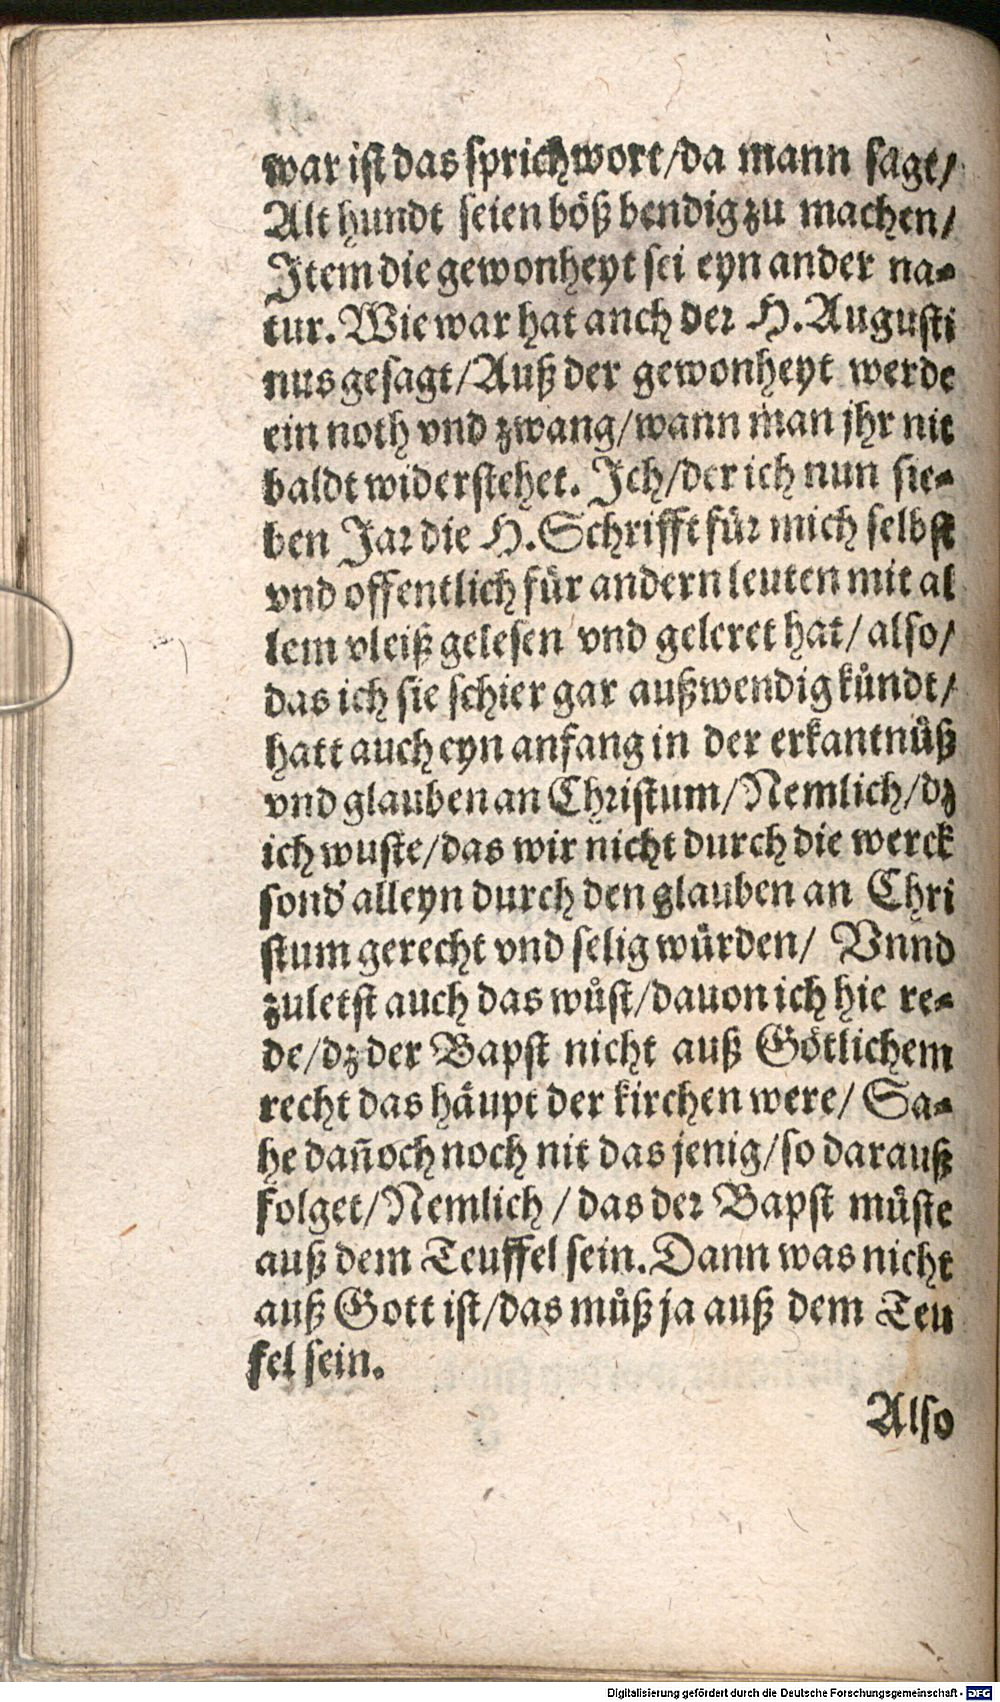 war ist das sprichwort/da mann sagt/
Alt hundt seien böß bendig zu machen/
Item die gewonheyt sei eyn ander na-
tur. Wie war hat anch der H. Augusti
nus gesagt/Auß der gewonheyt werde
ein noth vnd zwang/wann man jhr nit
baldt widerstehet. Ich/der ich nun sie-
ben Jar die H. Schrifft für mich selbst
vnd offentlich für andern leuten mit al
lem vleiß gelesen vnd geleret hat/also/
das ich sie schier gar außwendig kůndt/
hatt auch eyn anfang in der erkantnůß
vnd glauben an Christum/Nemlich/dz
ich wuste/das wir nicht durch die werck
sond' alleyn durch den glauben an Chri
stum gerecht vnd selig würden/ Vnnd
zuletst auch das wůst/dauon ich hie re-
de/dz der Bapst nicht auß Götlichem
recht das häupt der kirchen were/ Sa-
he dañoch noch nit das jenig/so darauß
folget/Nemlich/das der Bapst müste
auß dem Teuffel sein. Dann was nicht
auß Gott ist/das můß ja auß dem Teu
fel sein.
Also
Digitalisierung gefördert durch die Deutsche Forschungsgemeinschaft - DFG